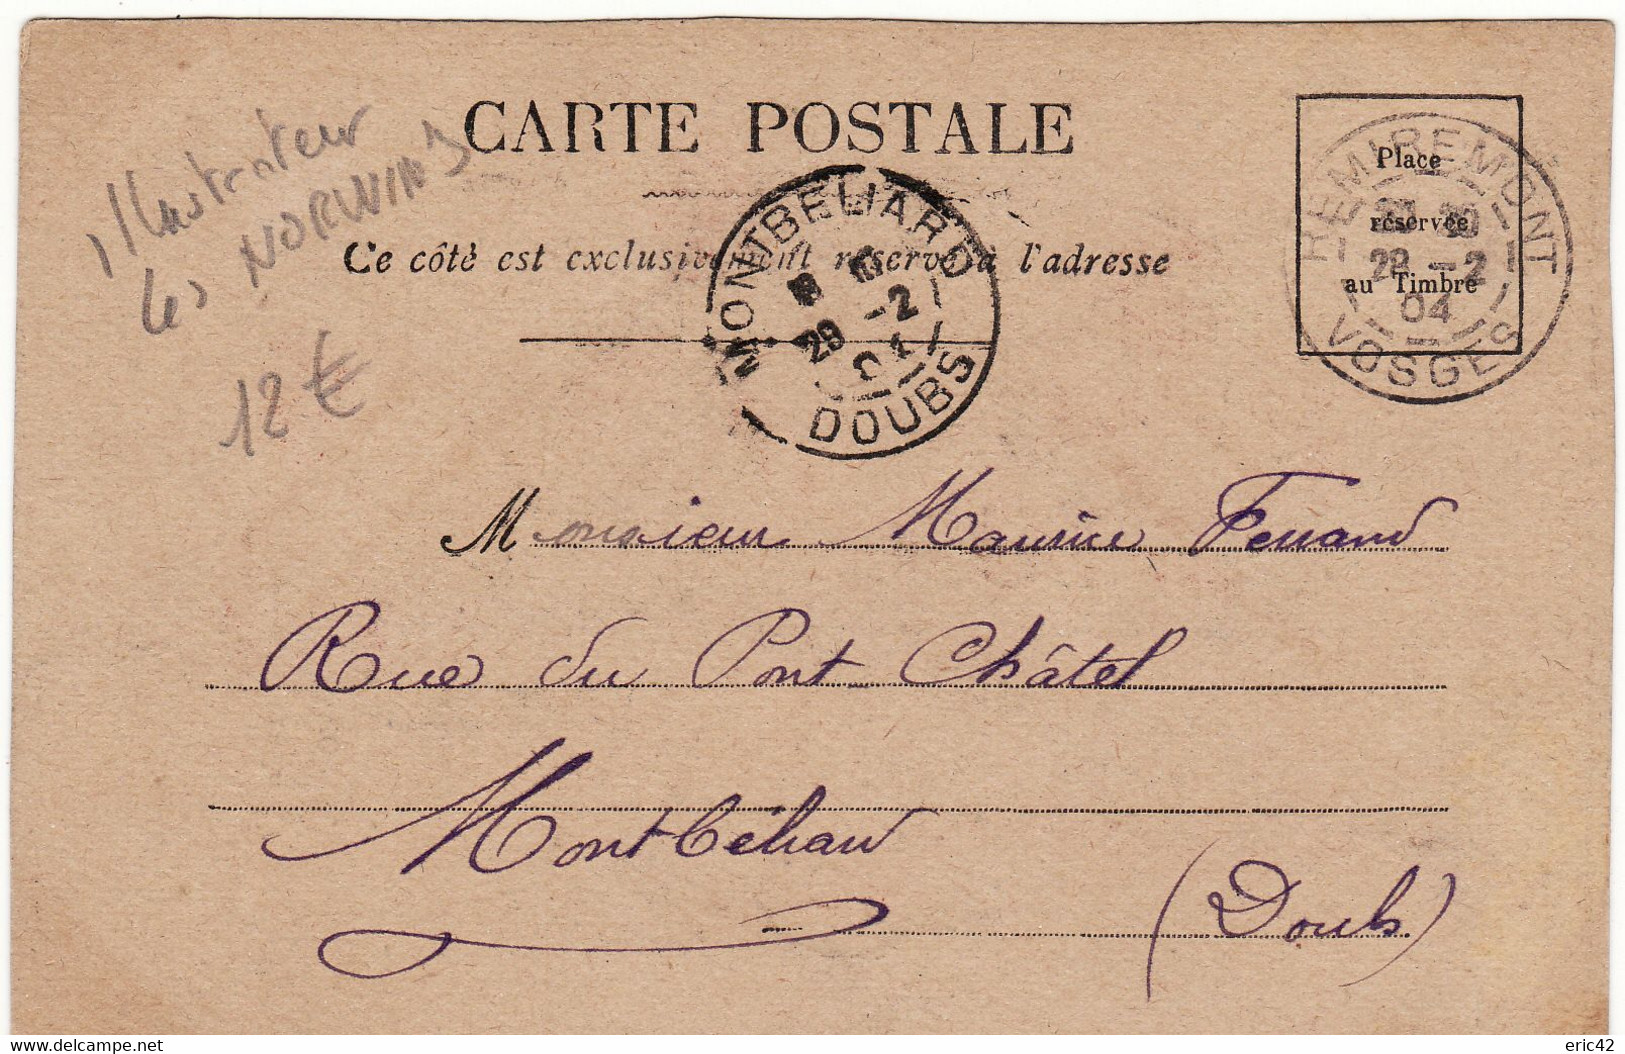 CARTE POSTALE
Illustrateur
les NORWINS
12 €
Ce côté est exclusivement réservé à l'adresse
Place
réservée
au Timbre
REMIREMONT
28 -2
04
VOSGES
MONTBELIARD
29 -2
04
DOUBS
Monsieur Maurice Ferrand
Rue du Pont Châtel
Montbéliard
(Doubs)
www.delcampe.net
eric42